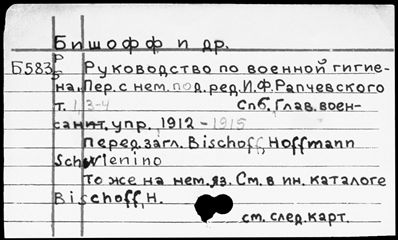 Бишофф и др.
Б583 Р
5 Руководство по военной гигие-
на. Пер. с нем. под. ред. И.Ф. Рапчевского
т. 1, 3-4 Спб, Глав. воен-
санит. упр. 1912-1915
Перед. загл. Bischoff, Hoffmann
Schwienino
То же на нем. яз. См. в ин. каталоге
Bischoff, H.
см. след. карт.